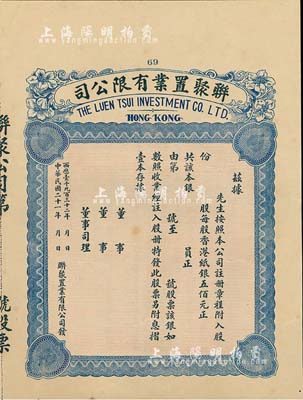 上海阳明拍卖
69
司公限有業置聚聯
THE LUEN TSUI INVESTMENT CO. LTD.
HONG KONG
茲據
先生按照本公司註冊章程附入股
份　股每股香港紙銀五佰元正
共該本銀　員正
由第　號至　號股票該銀如
數照收業經註入股冊特發此股票另附息摺
壹本存據
董事
董事
董事司理
西歷壹千九百三十二年　月　日
中華民國二十一年　月　日
聯聚置業有限公司發
聯聚公司第
號股票